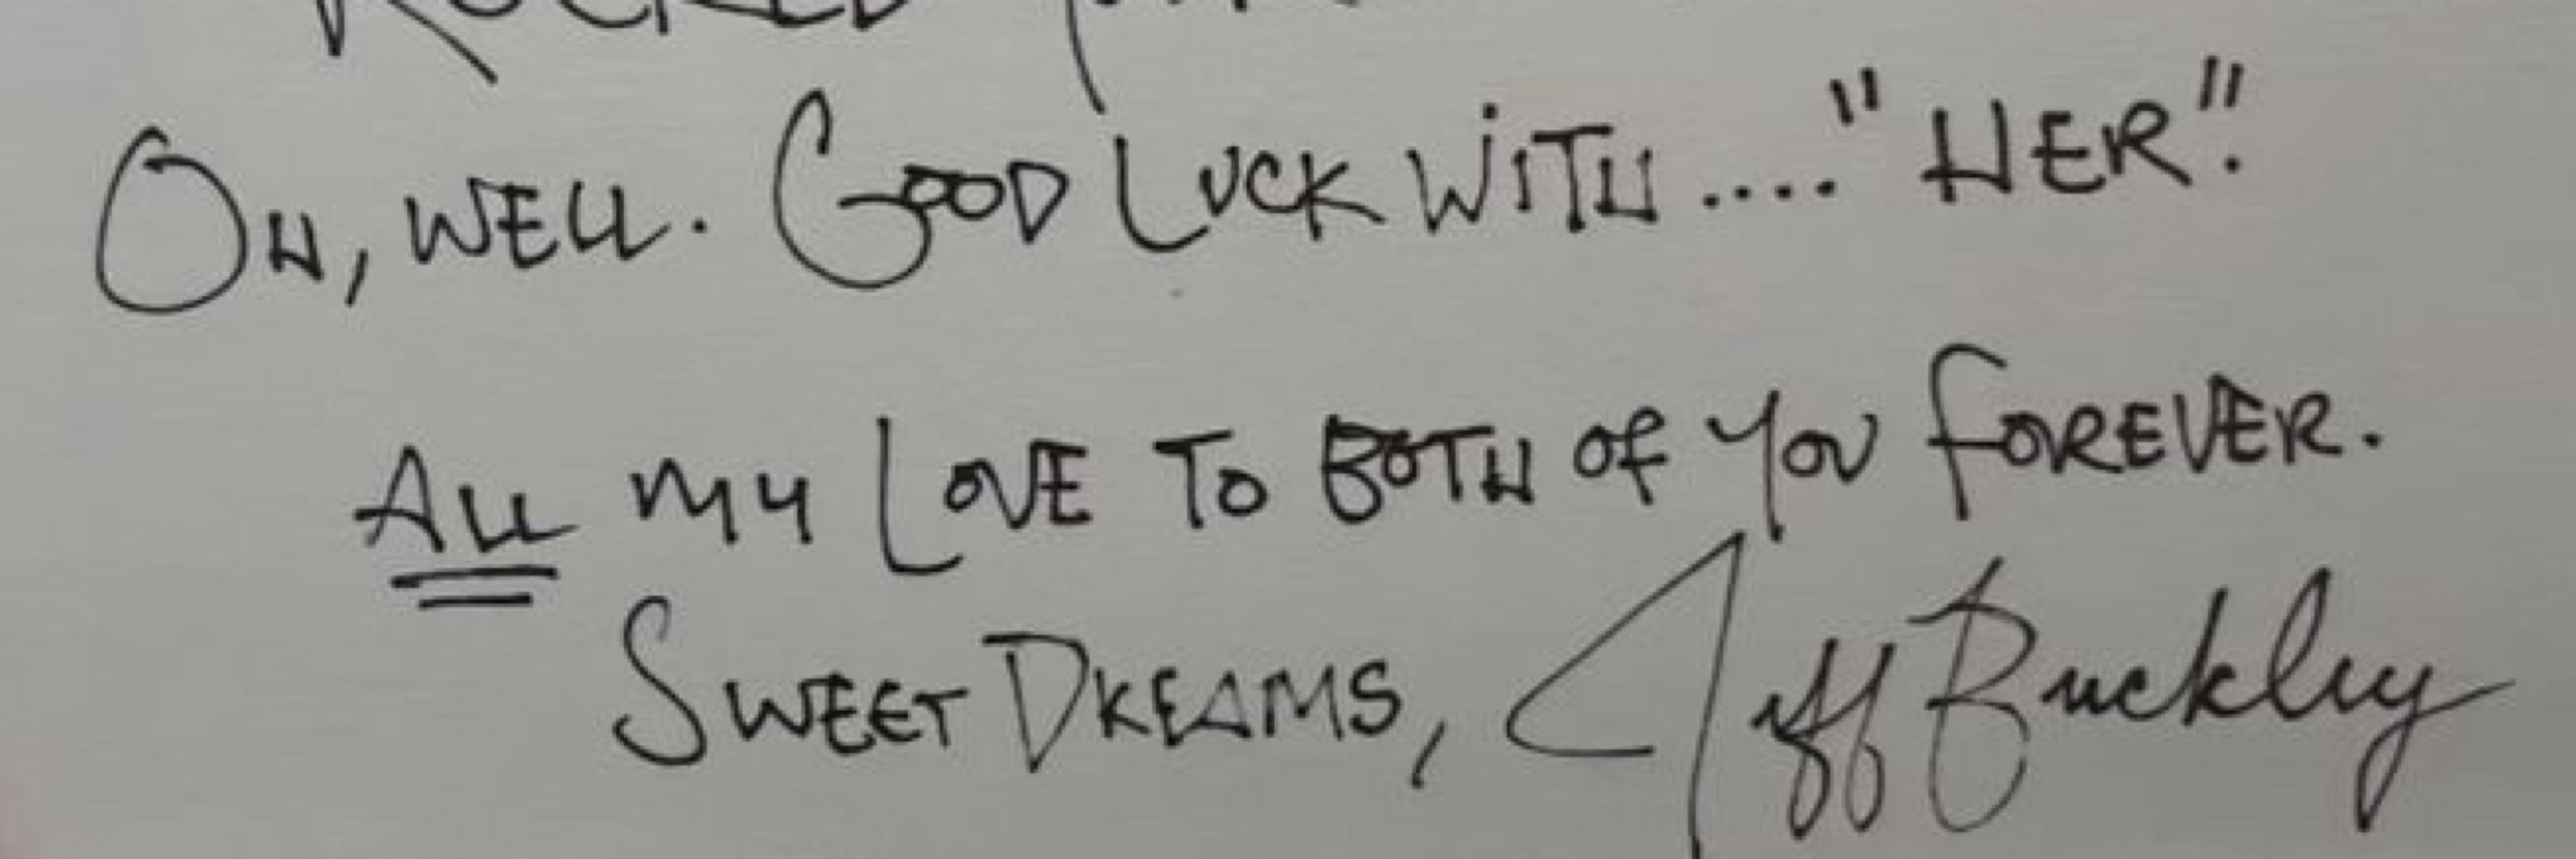 OH, WELL. GOOD LUCK WITH...."HER".
ALL MY LOVE TO BOTH OF YOU FOREVER.
SWEET DREAMS, Jeff Buckley